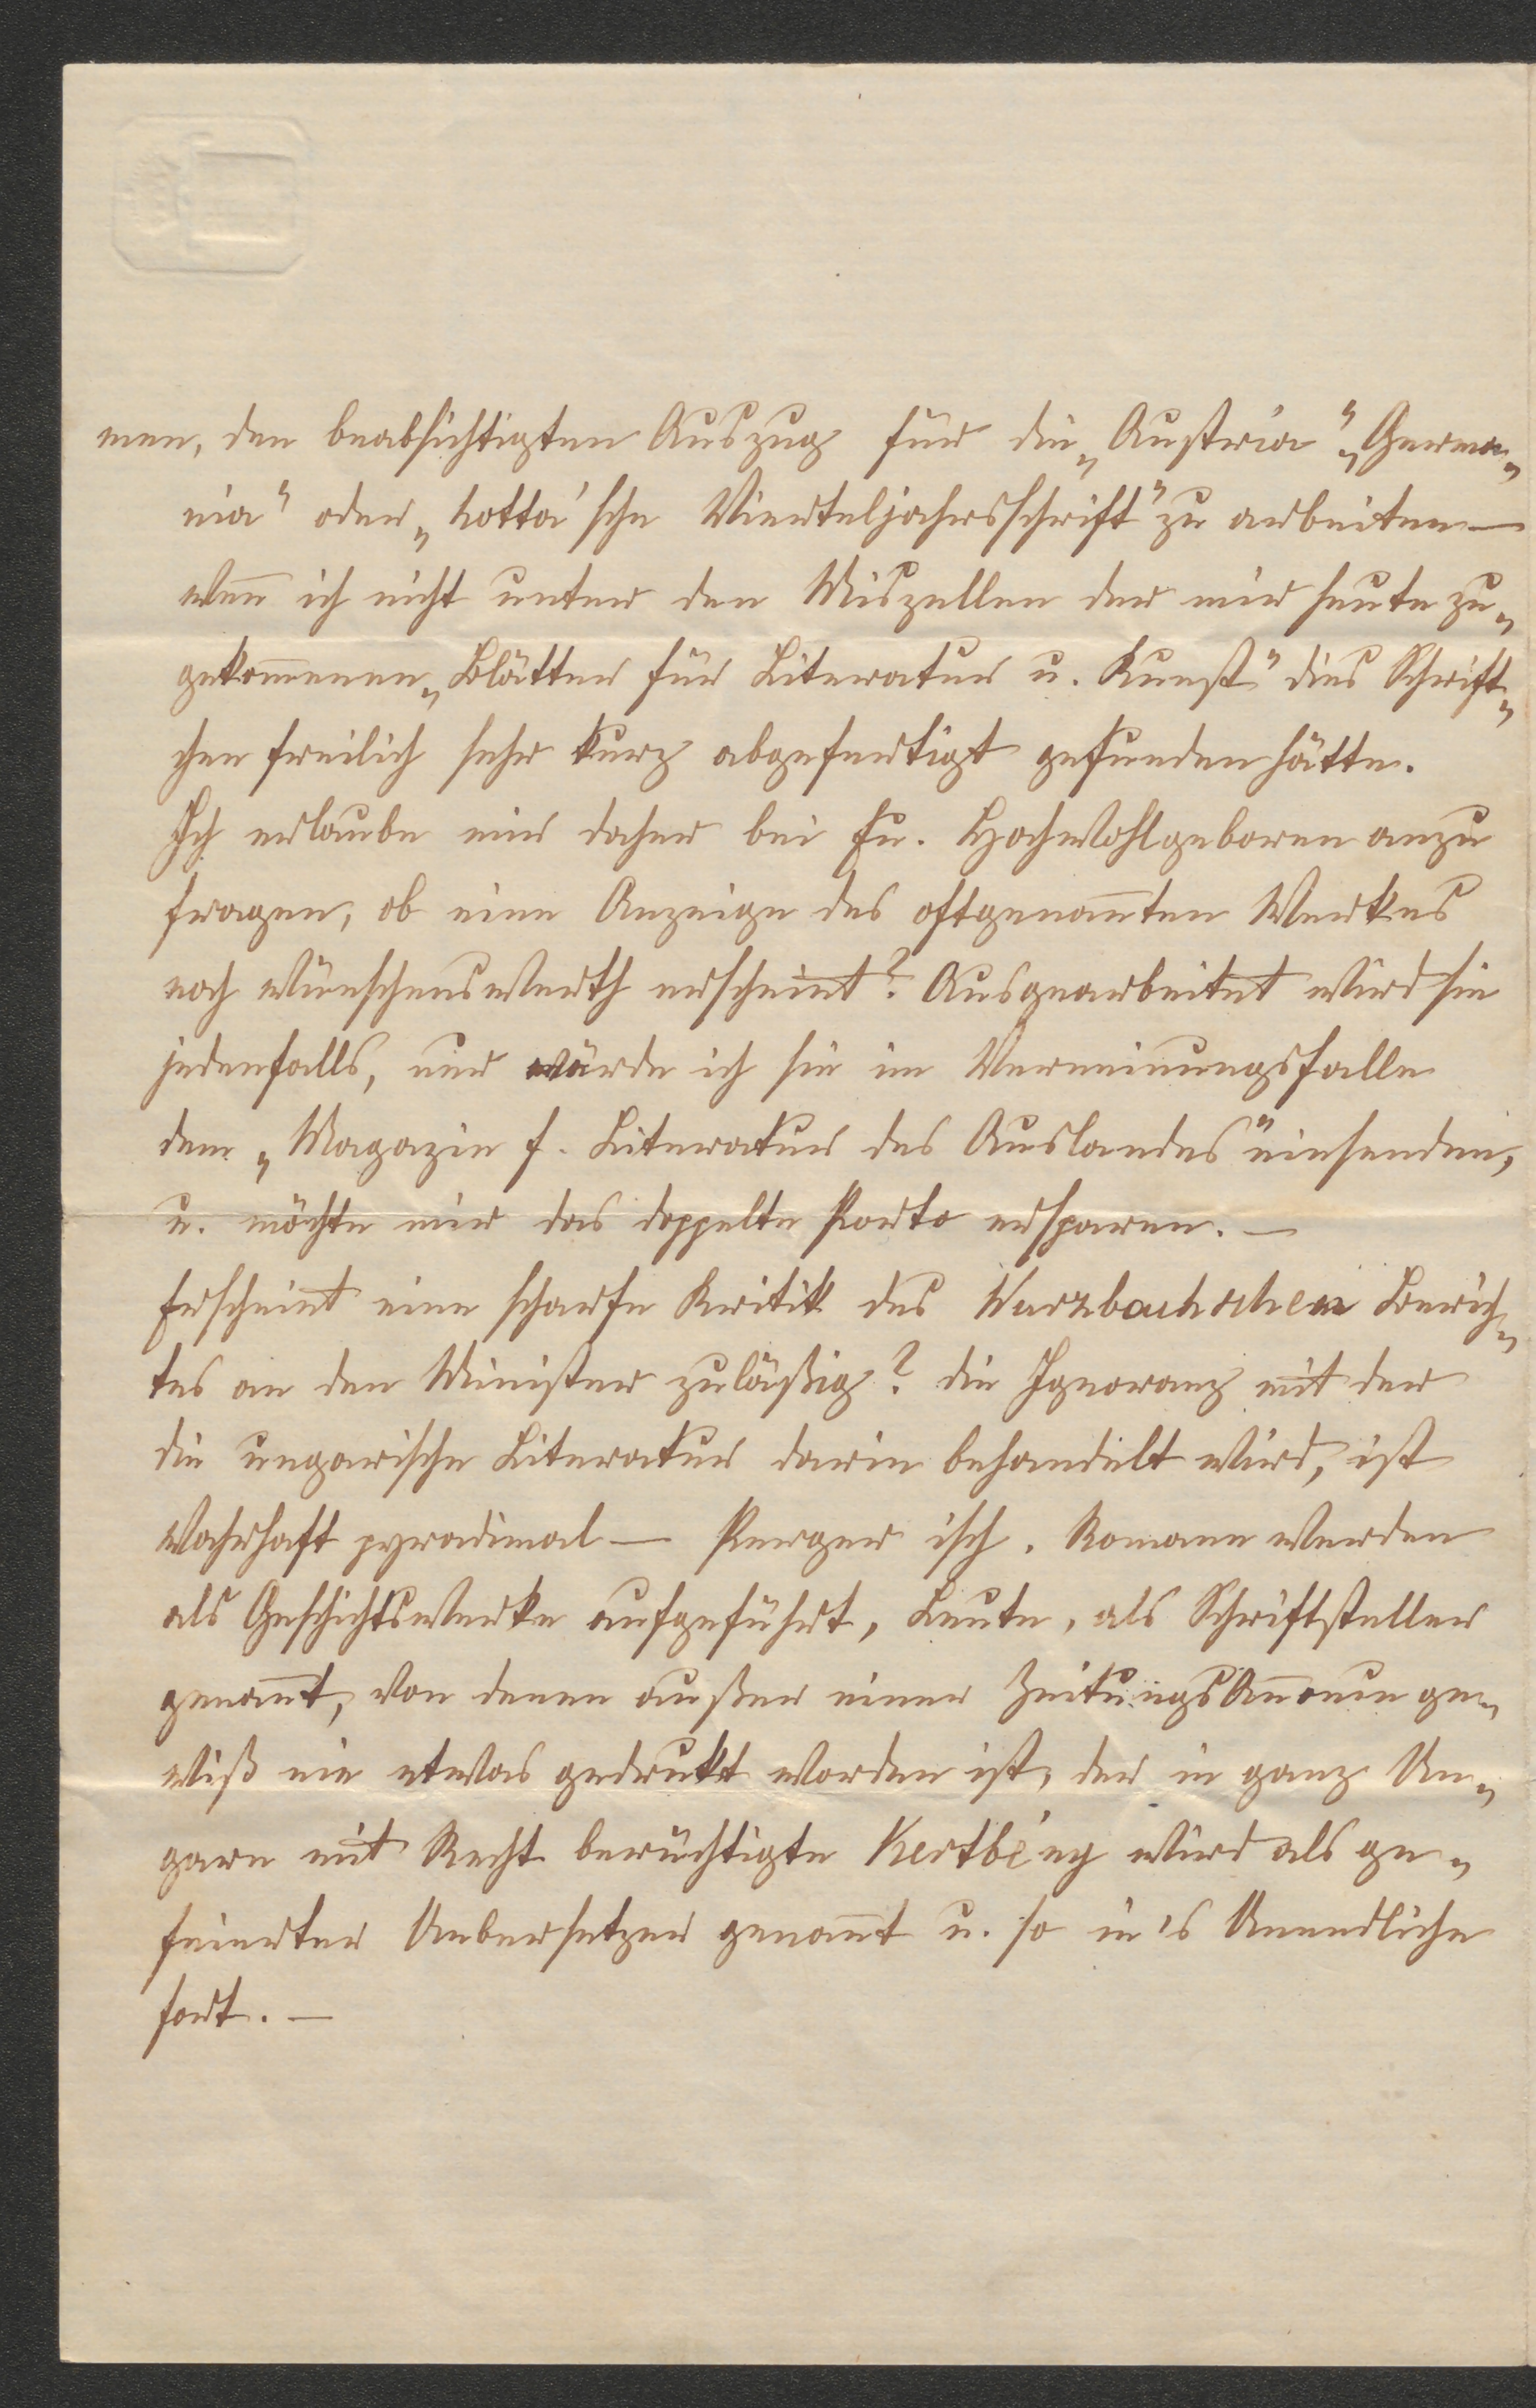 men, den beabsichtigten Auszug für die „Austria" „Germa„
nia" oder „Cotta'sche Vierteljahrsschrift" zu arbeiten —
wen̄ ich nicht unter den Miszellen der mir heute zu„
gekom̄enen „Blätter für Literatur u. Kunst" dies Schrift„
chen freilich sehr kurz abgefertigt gefunden hätte.
Ich erlaube mir daher bei Eu. Hochwohlgeboren anzu
fragen, ob eine Anzeige des oftgenan̄ten Werkes
noch wünschenswerth erscheint? Ausgearbeitet wird sie
jedenfalls, nur würde ich sie im Verneinungsfalle
dem „Magazin f. Literatur des Auslandes" einsenden,
u. möchte mir das doppelte Porto ersparen. —
Erscheint eine scharfe Kritik des Wurzbachschen Berich„
tes an den Minister zuläßig? die Ignoranz mit der
die ungarische Literatur darin behandelt wird, ist
wahrhaft pyradimal — Pergerisch. Romane werden
als Geschichtswerke aufgeführt, Leute, als Schriftsteller
genan̄t, von denen außer einer Zeitungs ge„
wiß nie etwas gedrukt worden ist, der in ganz Un„
garn mit Recht berüchtigte Kertbény wird als ge„
feierter Uebersetzer genan̄t u. so in's Unendliche
fort. —